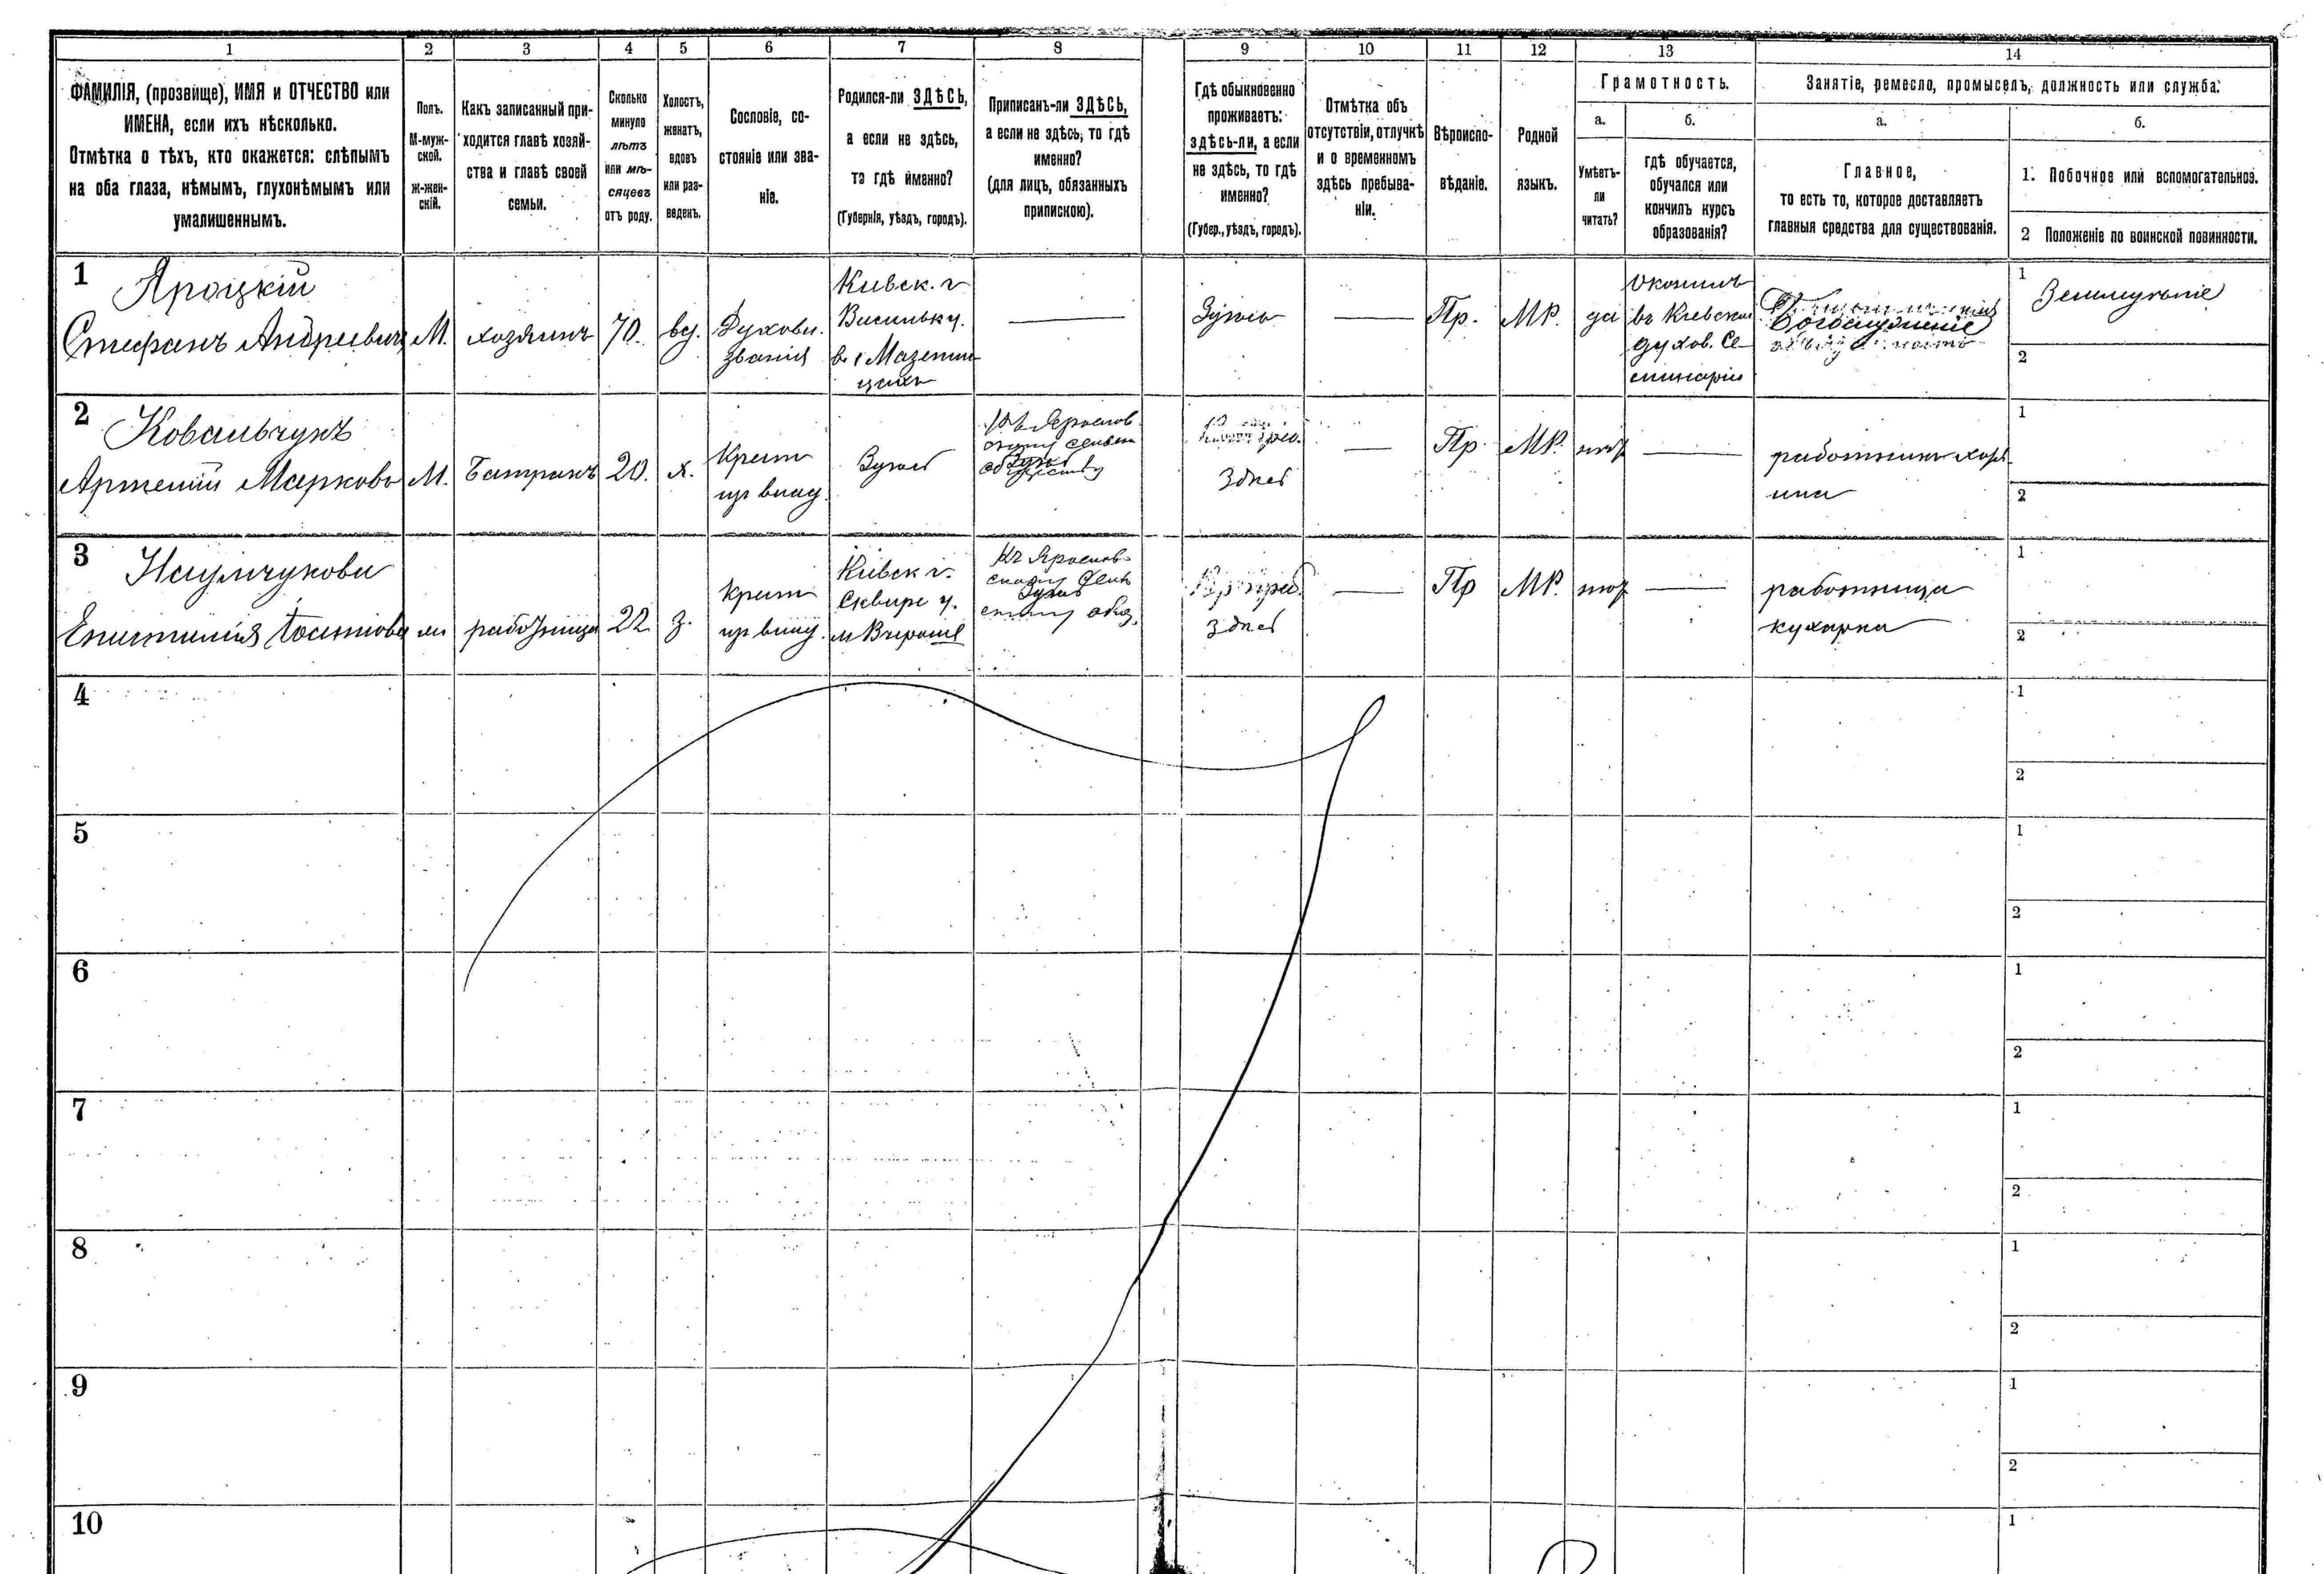 1 2 3 4 5 6 7 8 9 10 11 12 13 14
ФАМИЛІЯ, (прозвище), ИМЯ и ОТЧЕСТВО или
ИМЕНА, если ихъ нѣсколько.
Отмѣтка о тѣхъ, кто окажется: слѣпымъ
на оба глаза, нѣмымъ, глухонѣмымъ или
умалишеннымъ.
Полъ.
М-муж-
ской.
ж-жен-
скій.
Какъ записанный при-
ходится главѣ хозяй-
ства и главѣ своей
семьи.
Сколько
минуло
лѣтъ
или мѣ-
сяцевъ
отъ роду.
Холостъ,
женатъ,
вдовъ
или раз-
веденъ.
Сословіе, со-
стояніе или зва-
ніе.
Родился-ли ЗДѢСЬ,
а если не здѣсь,
то гдѣ именно?
(Губернія, уѣздъ, городъ).
Приписанъ-ли ЗДѢСЬ,
а если не здѣсь, то гдѣ
именно?
(для лицъ, обязанныхъ
припискою).
Гдѣ обыкновенно
проживаетъ:
здѣсь-ли, а если
не здѣсь, то гдѣ
именно?
(Губер., уѣздъ, городъ).
Отмѣтка объ
отсутствіи, отлучкѣ
и о временномъ
здѣсь пребыва-
ніи.
Вѣроиспо-
вѣданіе.
Родной
языкъ.
Грамотность.
а.
Умѣетъ-
ли
читать?
б.
гдѣ обучается,
обучался или
кончилъ курсъ
образованія?
Занятіе, ремесло, промыселъ, должность или служба.
а.
Главное,
то есть то, которое доставляетъ
главныя средства для существованія.
б.
1. Побочное или вспомогательное.
2 Положеніе по воинской повинности.
1
Яроцкій
Стефанъ Андреевичъ
М.
хозяинъ
70.
вд.
Духовн.
званія
Кіевск. г
Васильк у.
в с Мазепин
цахъ
Здѣсь
Пр.
МР.
да
Окончилъ
въ Кіевской
духов. Се
минаріи
Богослуженіе
1
Земледѣліе
2
2
Ковальчукъ
Артемій Марковъ
М.
Батракъ
20.
х.
Крест
из влад.
Здѣсь
Къ Ярослов
скому сельск
обществу
Здѣсь
Пр.
МР.
нѣт
работникъ хозя
ина
1
2
3
Наумчукова
Епистимія
работница
22
з.
крест
из влад.
Кіевск г.
Сквирс у.
Къ Ярослов
скому Сель
скому общ.
Здѣсь
Пр
МР.
нѣт
работница
кухарка
1
2
4
1
2
5
1
2
6
1
2
7
1
2
8
1
2
9
1
2
10
1